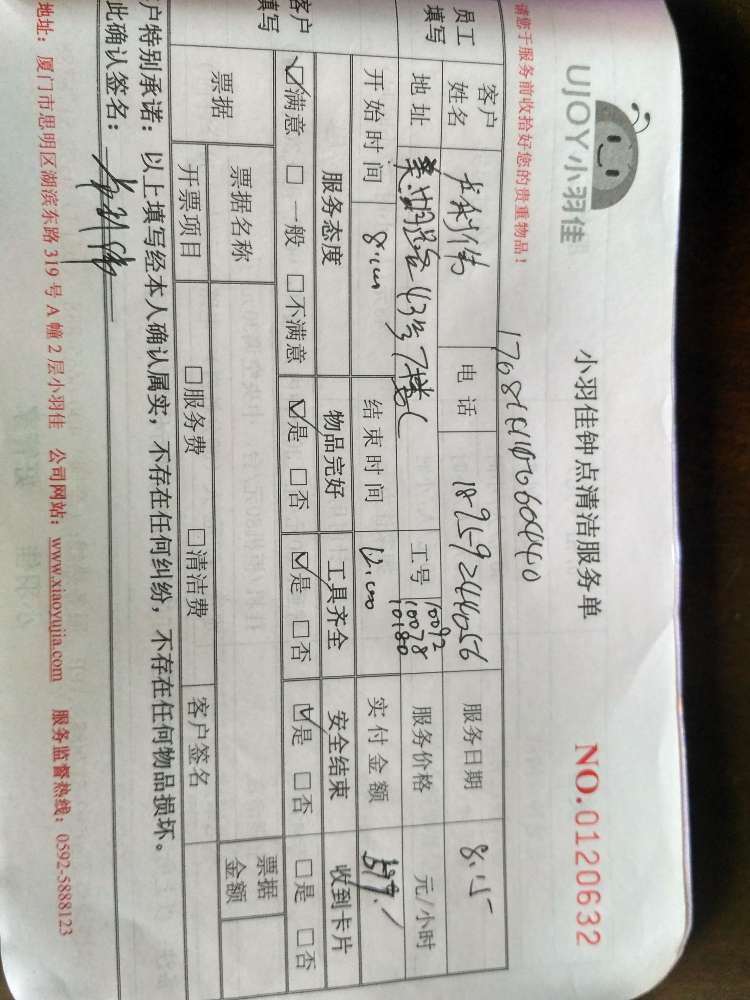 UJOY小羽佳
小羽佳钟点清洁服务单
NO.0120632
请您于服务前收拾好您的贵重物品！
员工填写
客户姓名
电话 18259244056
服务日期 8.15
地址
43号7楼
工号 10092 10078 10180
服务价格 元/小时
开始时间 8:00
结束时间 12:00
实付金额
客户填写
服务态度 物品完好 工具齐全 安全结束 收到卡片
☑满意 □一般 □不满意 ☑是 □否 ☑是 □否 ☑是 □否 □是 □否
票据 票据名称 票据金额
开票项目 □服务费 □清洁费 客户签名
户特别承诺：以上填写经本人确认属实，不存在任何纠纷，不存在任何物品损坏。
此确认签名：
地址：厦门市思明区湖滨东路319号A幢2层小羽佳 公司网站：www.xiaoyujia.com 服务监督热线：0592-5888123